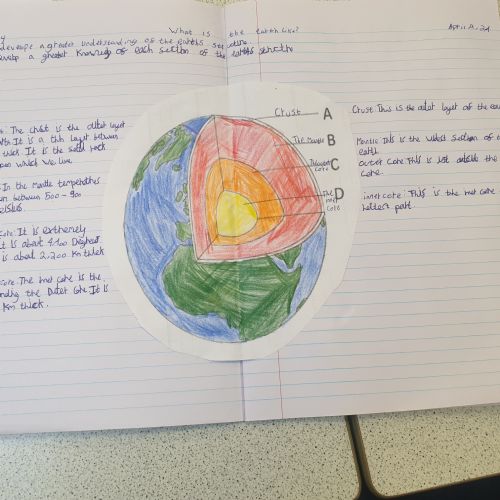 What is the Earth like?
April A. 24
develope a greater understanding of the earths
develop a greater knowledg of each section of the earths
Crust A
The Mantle B
C
core
D
core
The crust is the outer layer
It is a thin layer between
thick. It is the solid rock
upon which we live.
In the Mantle temperatures
between 500 - 900
Core: It is extremely
it is about 4400 Degrees
is about 2,200 Km thick
Core. The inner core is the
the Outer Core. It is
Km thick.
Crust This is the outer layer of the
Mantle This is the widest section of
earth
Outer core This is just outside the
core.
inner core: This is the
hottest part.